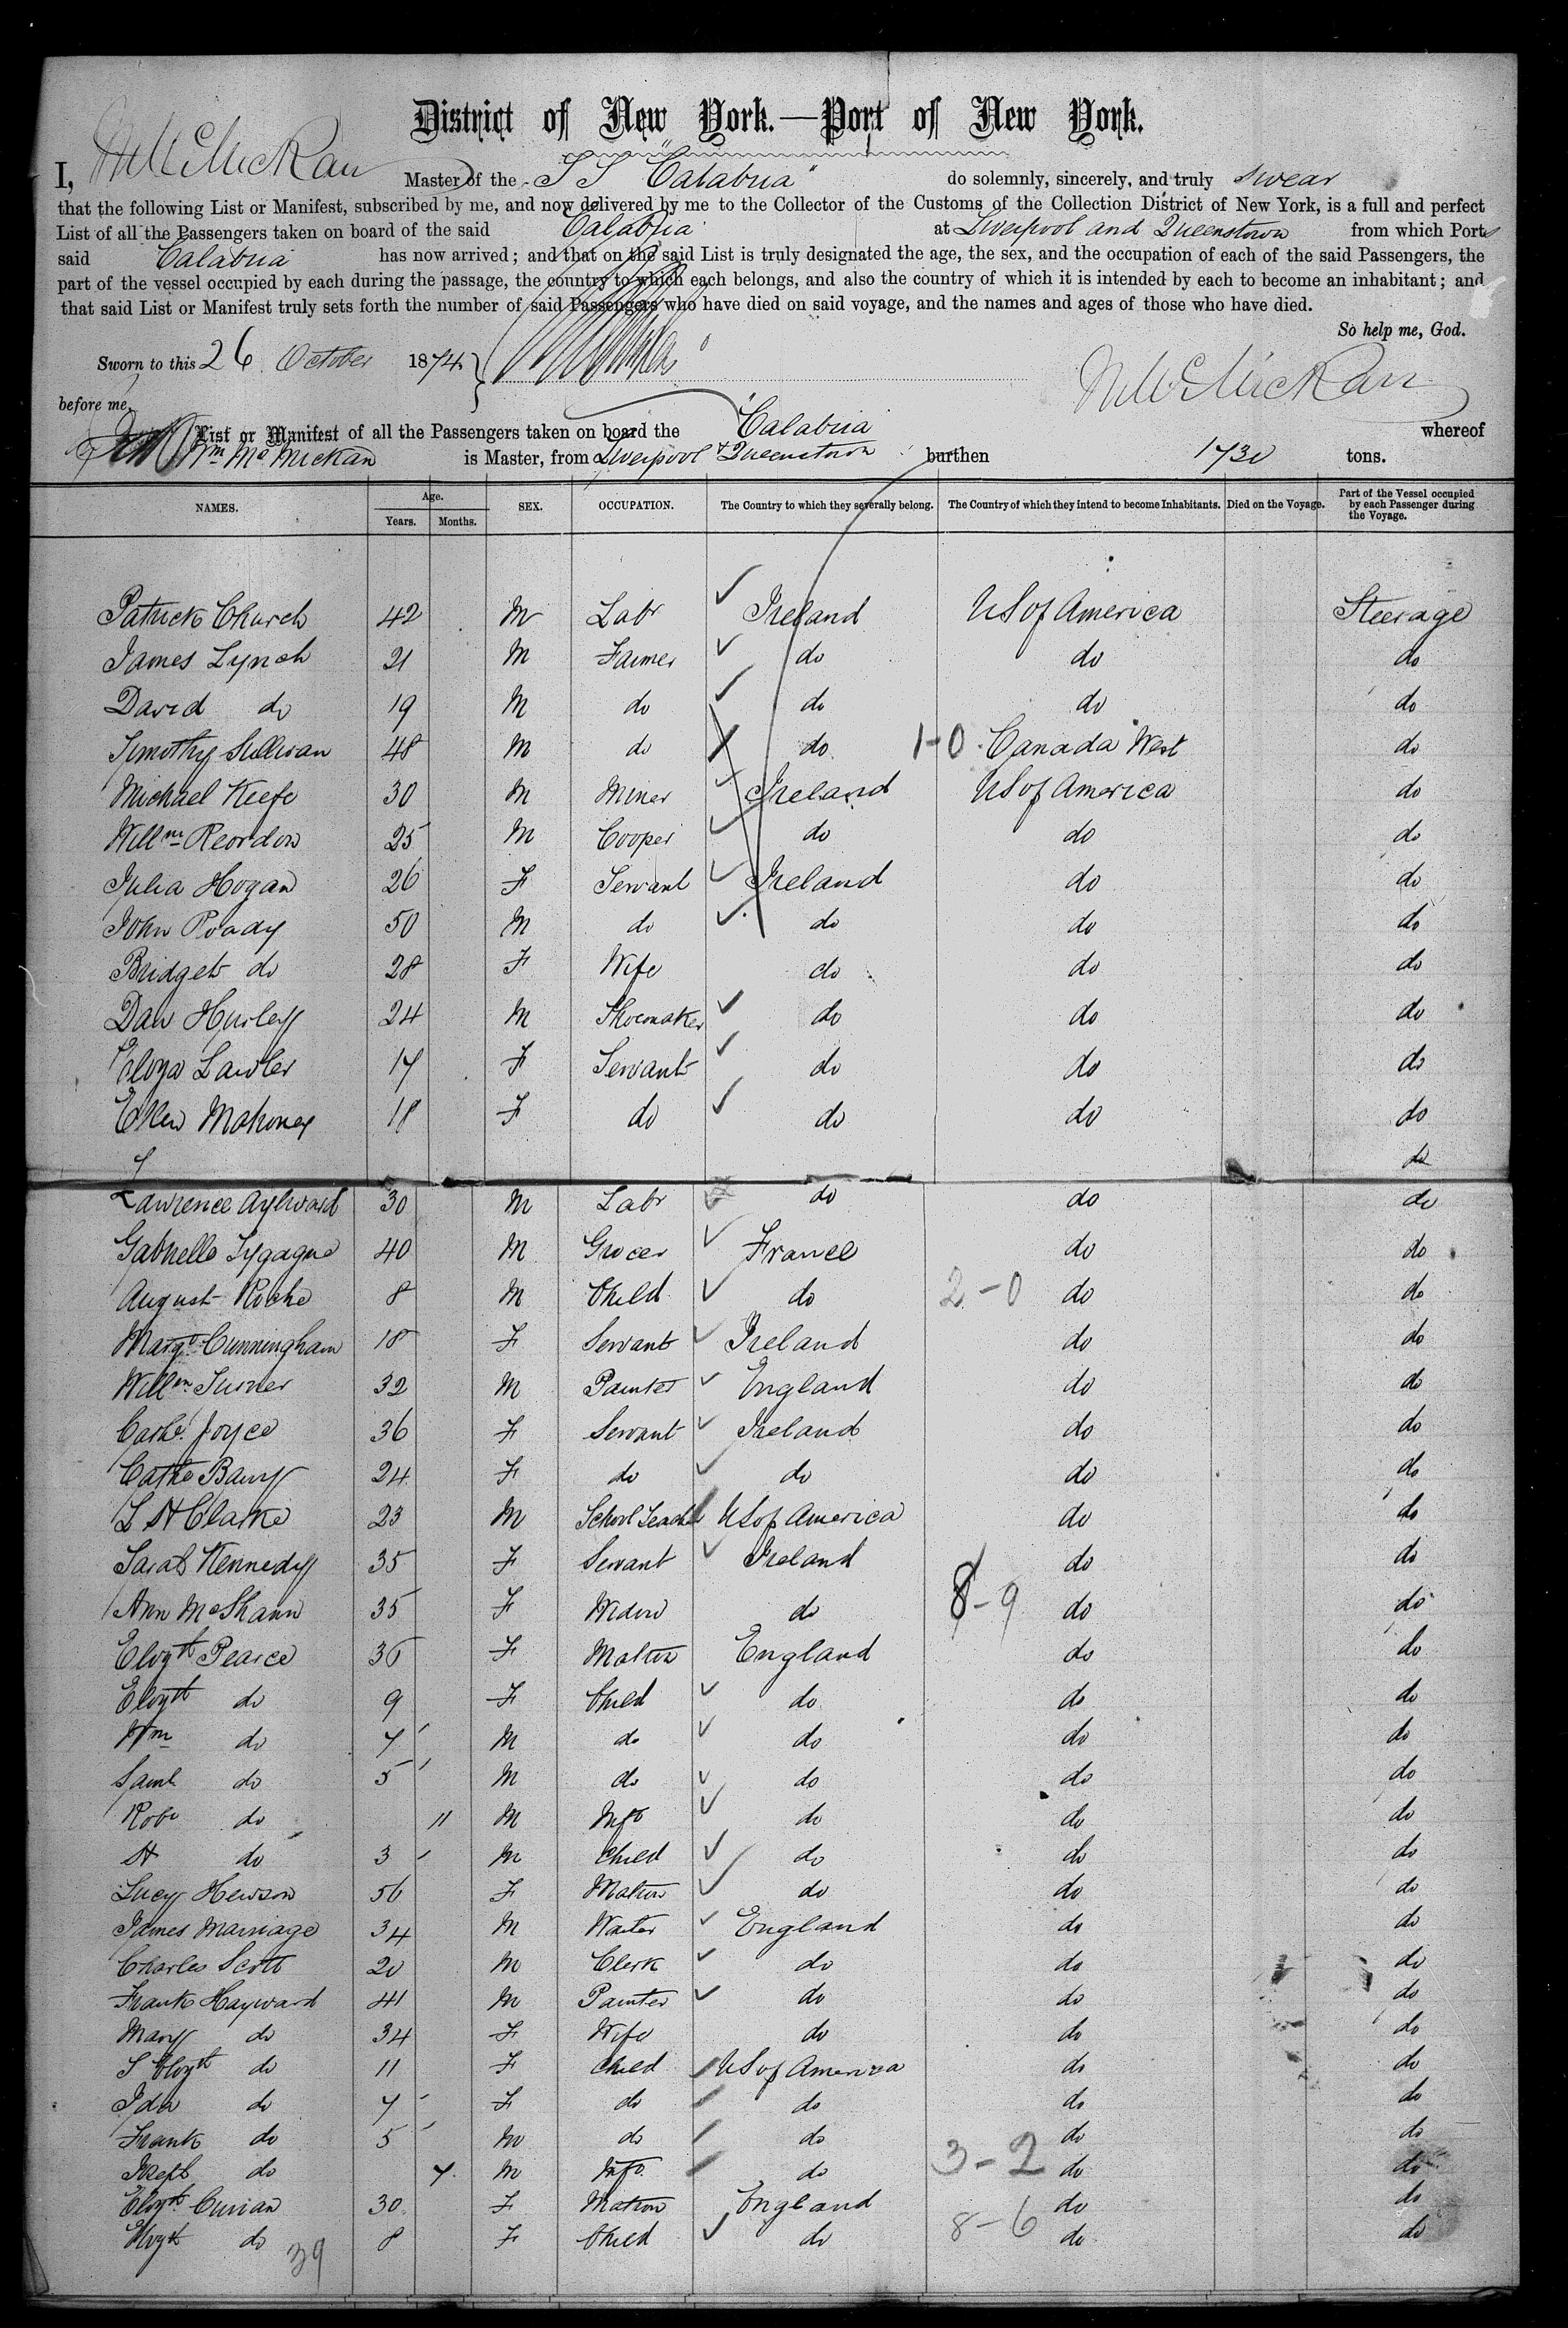 District of New York.—Port of New York.
I, Wm McMickan Master of the SS "Calabria" do solemnly, sincerely, and truly swear
that the following List or Manifest, subscribed by me, and now delivered by me to the Collector of the Customs of the Collection District of New York, is a full and perfect
List of all the Passengers taken on board of the said Calabria at Liverpool and Queenstown from which Ports
said Calabria has now arrived; and that on the said List is truly designated the age, the sex, and the occupation of each of the said Passengers, the
part of the vessel occupied by each during the passage, the country to which each belongs, and also the country of which it is intended by each to become an inhabitant; and
that said List or Manifest truly sets forth the number of said Passengers who have died on said voyage, and the names and ages of those who have died.
So help me, God.
Sworn to this 26 October 1874
Wm McMickan
before me,
List or Manifest of all the Passengers taken on board the "Calabria whereof
Wm McMickan is Master, from Liverpool & Queenstown burthen 1730 tons.
NAMES. Age. Years. Months. SEX. OCCUPATION. The Country to which they severally belong. The Country of which they intend to become Inhabitants. Died on the Voyage. Part of the Vessel occupied by each Passenger during the Voyage.
Patrick Church 42 M Labr Ireland US of America Steerage
James Lynch 21 M Farmer do do do
David do 19 M do do do do
Timothy Sullivan 48 M do do 1-0 Canada West do
Michael Keefe 30 M Miner Ireland US of America do
Willm Reordon 25 M Cooper do do do
Julia Hogan 26 F Servant Ireland do do
John Roady 50 M do do do do
Bridget do 28 F Wife do do do
Dan Hurley 24 M Shoemaker do do do
Eloza Lawler 17 F Servant do do do
Ellen Mahoney 18 F do do do do
do
Lawrence Aylward 30 M Labr do do do
Gabrielle Lygagne 40 M Grocer France do do
August Roche 8 M Child do 2-0 do do
Margt Cunningham 18 F Servant Ireland do do
Willm Turner 32 M Painter England do do
Cathe Joyce 36 F Servant Ireland do do
Cathe Barry 24 F do do do do
L H Clarke 23 M School Teacher US of America do do
Sarah Kennedy 35 F Servant Ireland do do
Ann McShann 35 F Widow do 8-9 do do
Elizth Pearce 36 F Matron England do do
Elizth do 9 F Child do do do
Wm do 7 M do do do do
Saml do 5 M do do do do
Robt do 11 M Inft do do do
H do 3 M Child do do do
Lucy Hewson 56 F Matron do do do
James Marriage 34 M Waiter England do do
Charles Scott 20 M Clerk do do do
Frank Hayward 41 M Painter do do do
Mary do 34 F Wife do do do
S Elizth do 11 F Child US of America do do
Ida do 7 F do do do do
Frank do 5 M do do do do
Joseph do 7 M Inft do 3-2 do do
Elizth Curran 30 F Matron England do do
Elizth do 8 F Child do 8-6 do do
39